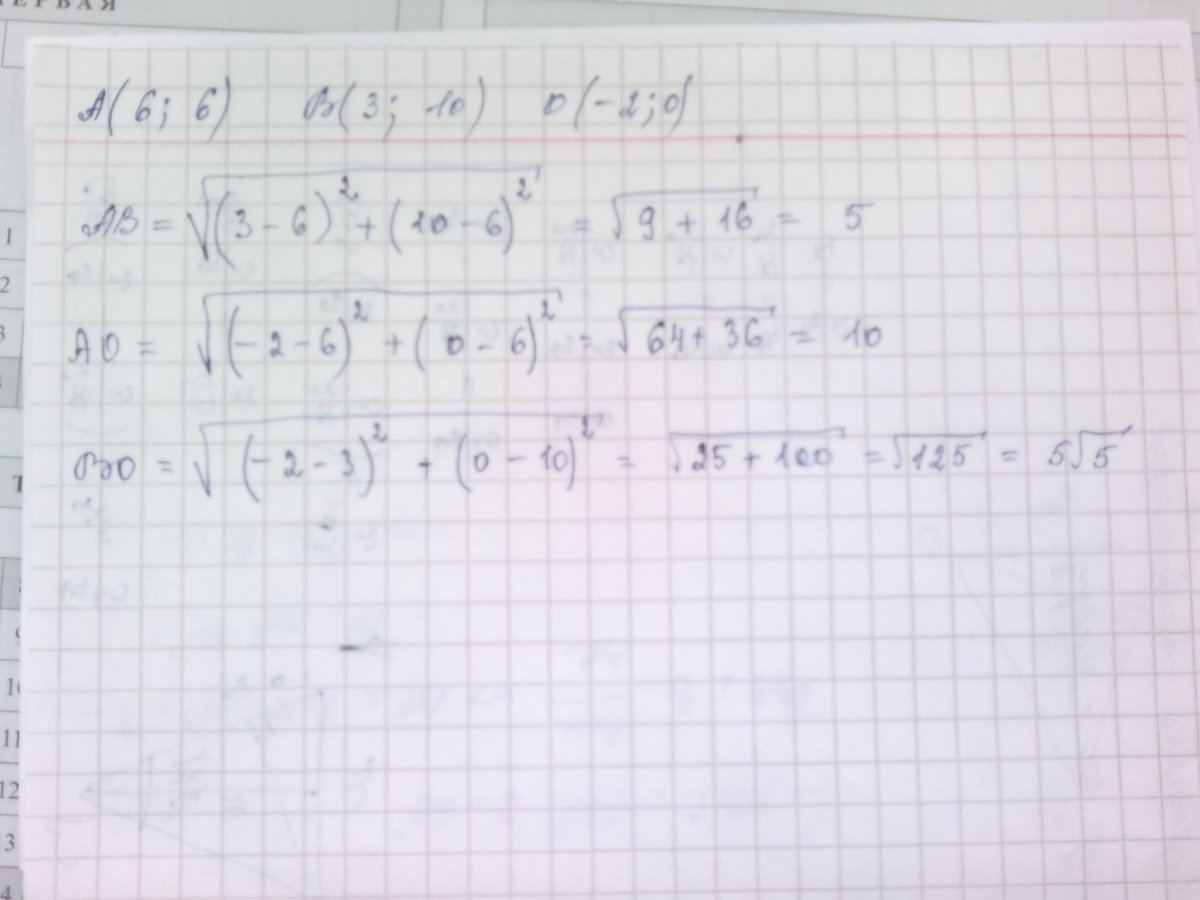 ПЕРВАЯ
A(6; 6) B(3; 10) O(-2;0)
AB = √((3-6)² + (10-6)²) = √(9 + 16) = 5
AO = √((-2-6)² + (0-6)²) = √(64+36) = 10
BO = √((-2-3)² + (0-10)²) = √(25+100) = √125 = 5√5
1
2
3
9
10
11
12
13